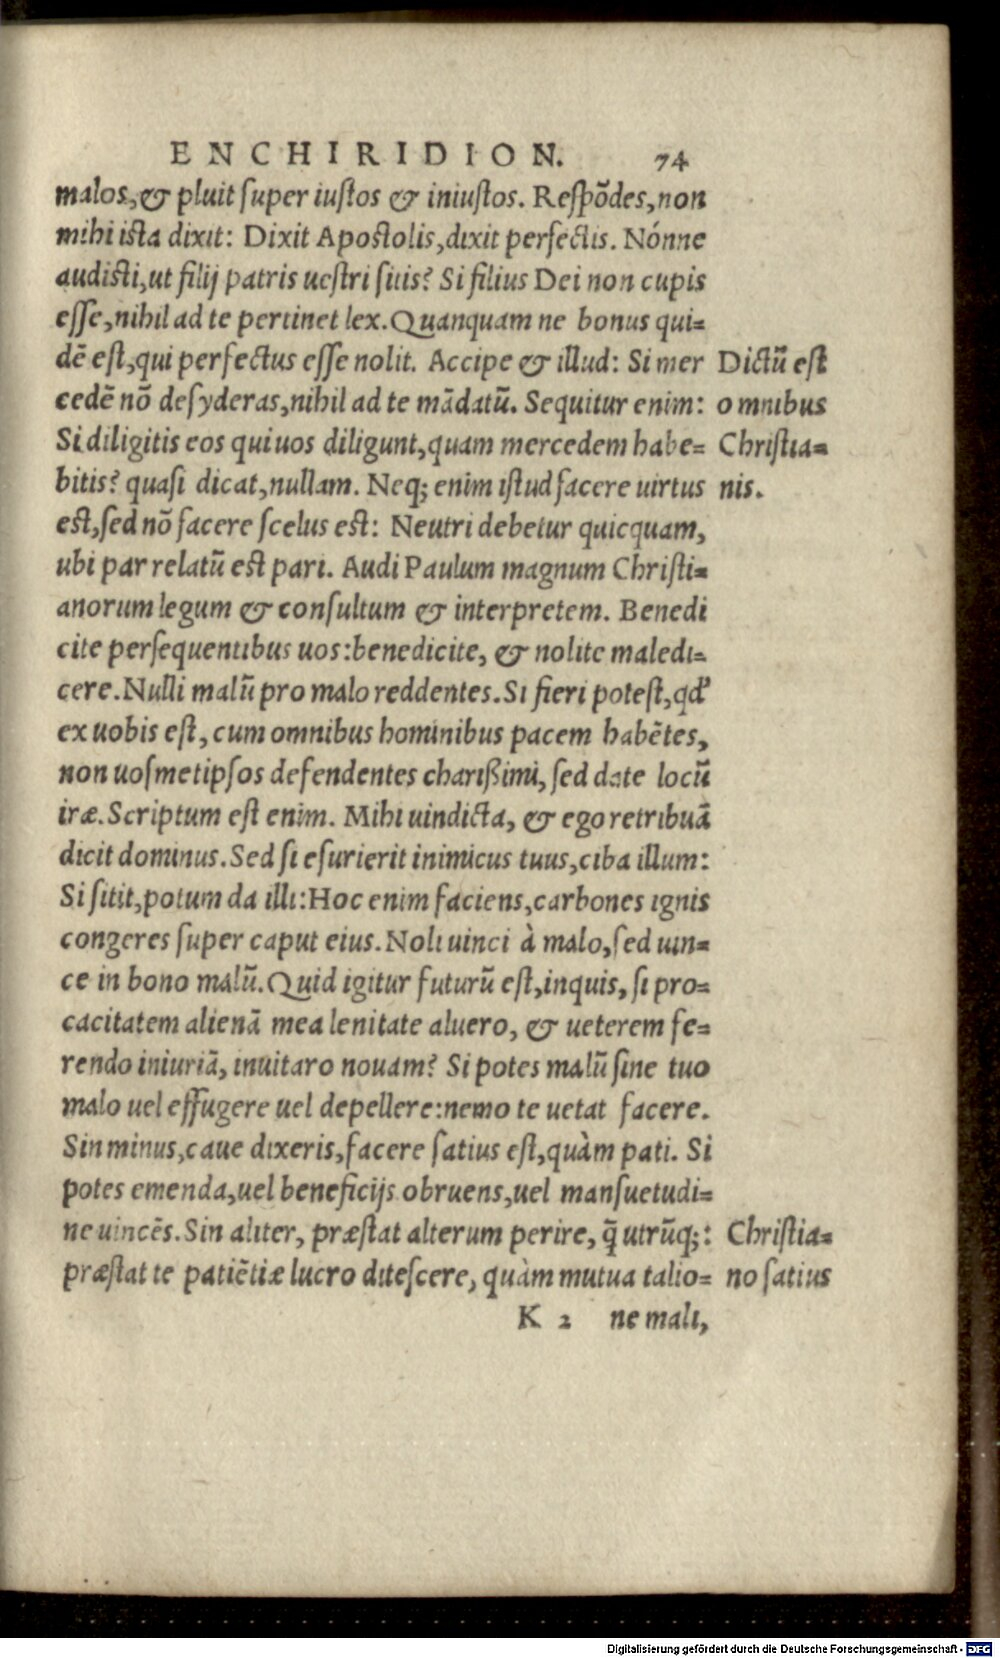 ENCHIRIDION. 74
malos, & pluit super iustos & iniustos. Respõdes, non
mihi ista dixit: Dixit Apostolis, dixit perfectis. Nónne
audisti, ut filij patris uestri sitis? Si filius Dei non cupis
esse, nihil ad te pertinet lex. Quanquam ne bonus qui=
dẽ est, qui perfectus esse nolit. Accipe & illud: Si mer
cedẽ nõ desyderas, nihil ad te mãdatũ. Sequitur enim:
Si diligitis eos qui uos diligunt, quam mercedem habe=
bitis? quasi dicat, nullam. Neq; enim istud facere uirtus
est, sed nõ facere scelus est: Neutri debetur quicquam,
ubi par relatũ est pari. Audi Paulum magnum Christi=
anorum legum & consultum & interpretem. Benedi
cite persequentibus uos: benedicite, & nolite maledi=
cere. Nulli malũ pro malo reddentes. Si fieri potest, qd'
ex uobis est, cum omnibus hominibus pacem habẽtes,
non uosmetipsos defendentes charißimi, sed date locũ
iræ. Scriptum est enim. Mihi uindicta, & ego retribuã
dicit dominus. Sed si esurierit inimicus tuus, ciba illum:
Si sitit, potum da illi: Hoc enim faciens, carbones ignis
congeres super caput eius. Noli uinci à malo, sed uin=
ce in bono malũ. Quid igitur futurũ est, inquis, si pro=
cacitatem alienã mea lenitate aluero, & ueterem fe=
rendo iniuriã, inuitaro nouam? Si potes malũ sine tuo
malo uel effugere uel depellere: nemo te uetat facere.
Sin minus, caue dixeris, facere satius est, quàm pati. Si
potes emenda, uel beneficijs obruens, uel mansuetudi=
ne uincẽs. Sin aliter, præstat alterum perire, q̃ utrũq;:
præstat te patiẽtiæ lucro ditescere, quàm mutua talio=
K 2 ne mali,
Dictũ est
omnibus
Christia=
nis.
Christia=
no satius
Digitalisierung gefördert durch die Deutsche Forschungsgemeinschaft - DFG